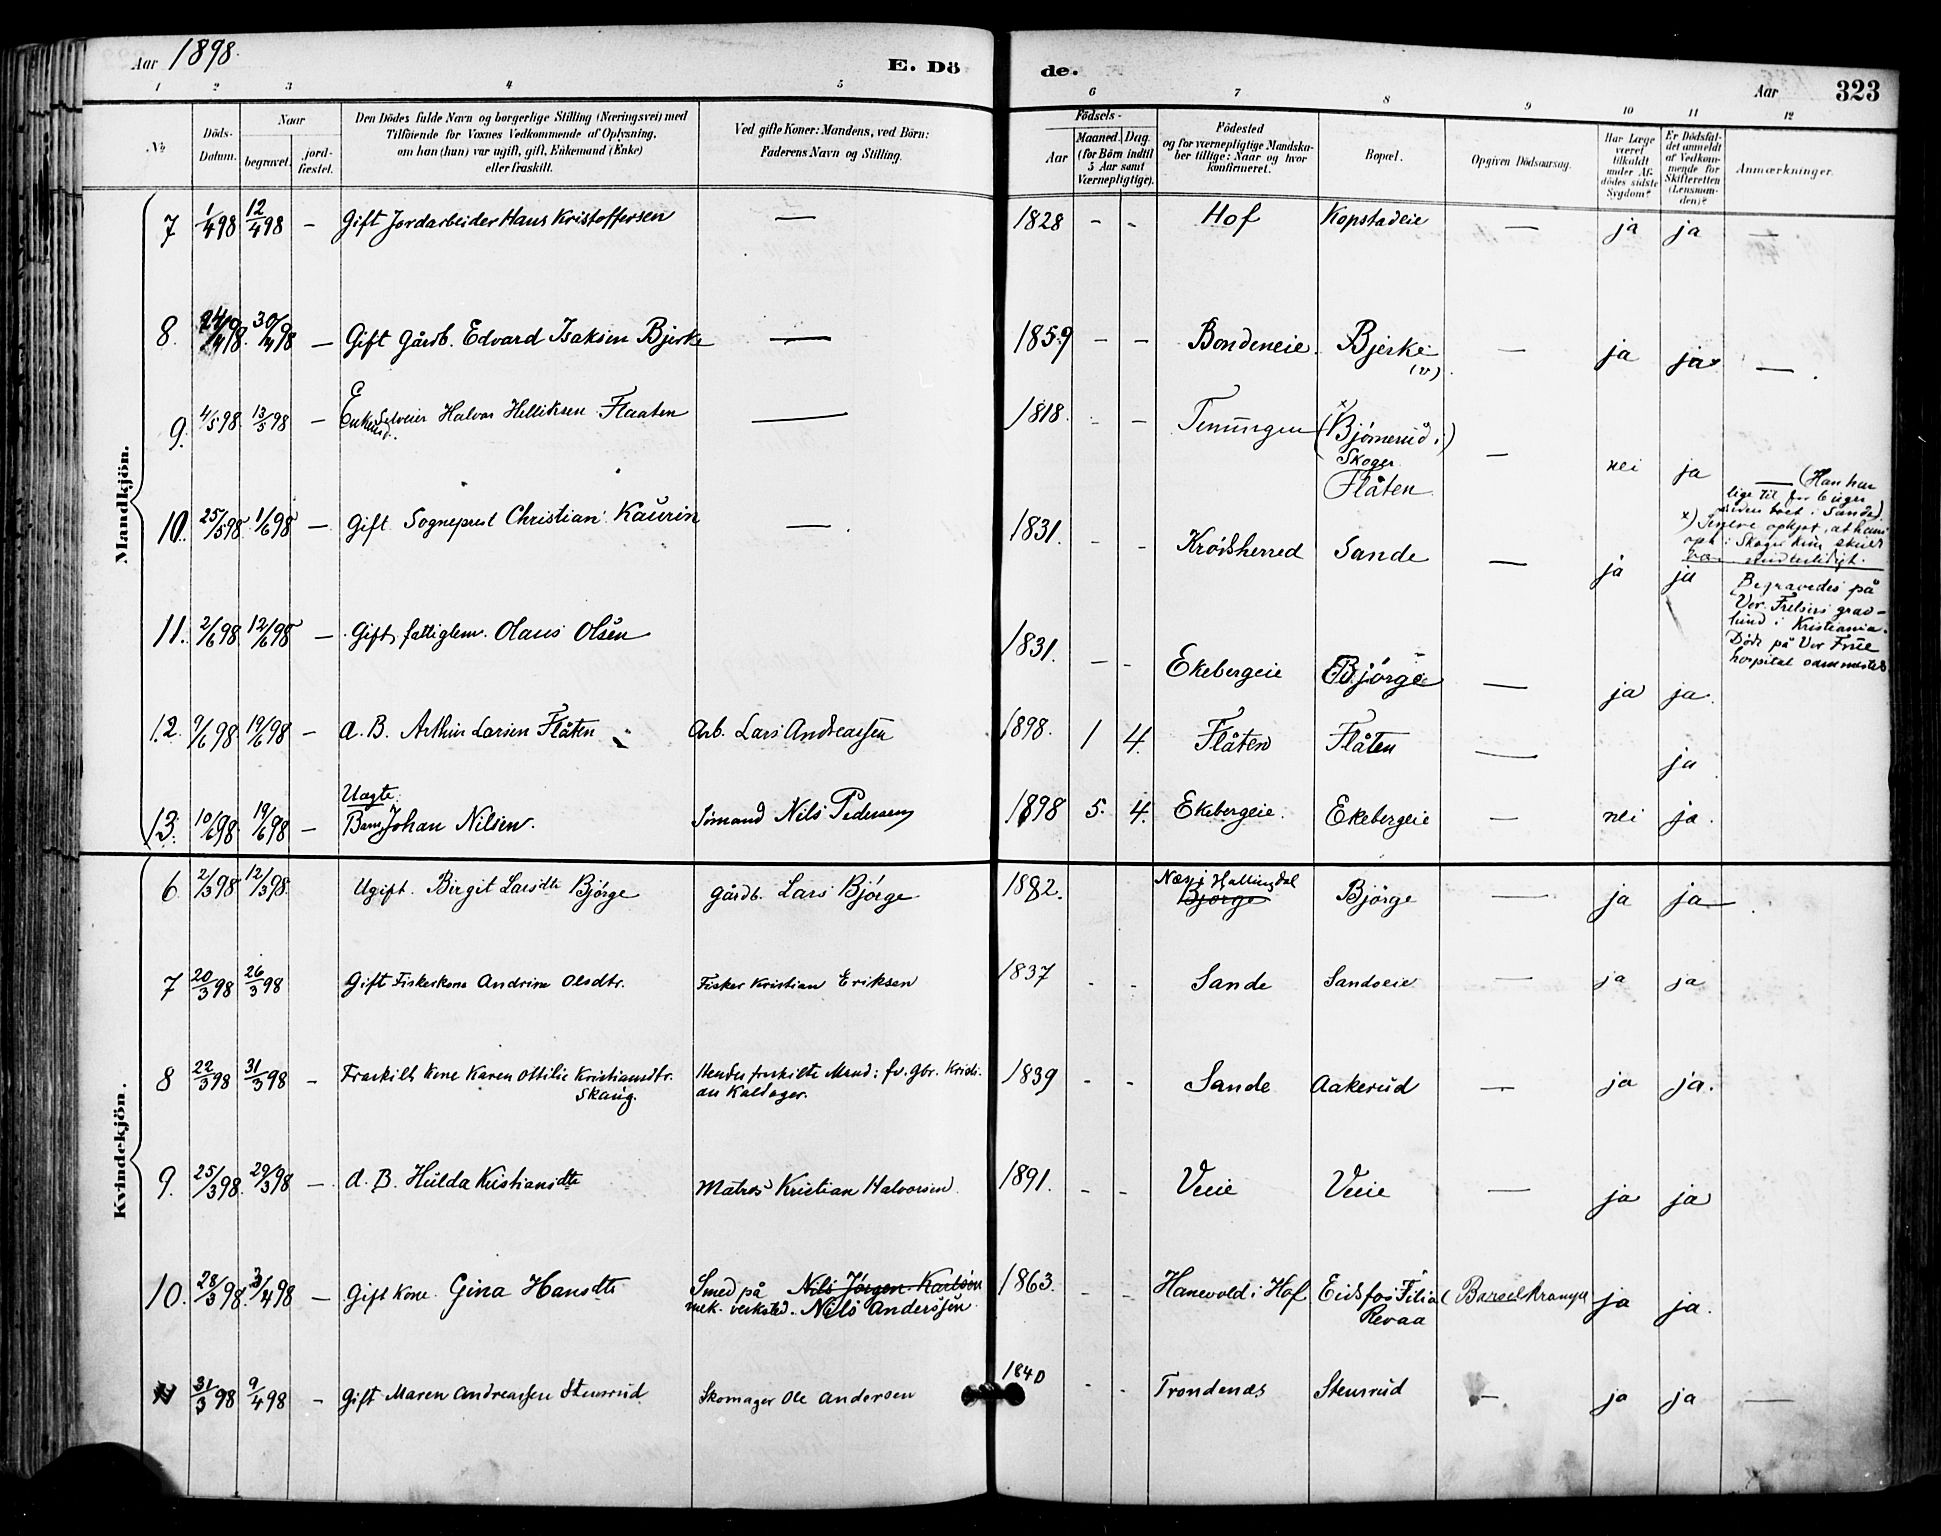 Aar 1898.
E. Dö
de.
Aar
323
1 2 3 4 5 6 7 8 9 10 11 12
No
Döds-
Datum.
Naar
begravet.
jord-
fæstet.
Den Dödes fulde Navn og borgerlige Stilling (Næringsvei) med
Tilföiende for Voxnes Vedkommende af Oplysning,
om han (hun) var ugift, gift, Enkemand (Enke)
eller fraskilt.
Ved gifte Koner: Mandens, ved Börn:
Faderens Navn og Stilling.
Födsels-
Aar
Maaned. Dag.
(for Börn indtil
5 Aar samt
Værnepligtige).
Födested
og for værnepligtige Mandska-
ber tillige: Naar og hvor
konfirmeret.
Bopæl.
Opgiven Dödsaarsag.
Har Læge
været
tilkaldt
under Af-
dödes sidste
Sygdom?
Er Dödsfal-
det anmeldt
af Vedkom-
mende for
Skifteretten
(Lensman-
den)?
Anmærkninger.
Mandkjön.
7 1/4 98 12/4 98 – Gift Jordarbeider Hans Kristoffersen — 1828 - - Hof Kopstadeie — ja ja —
8. 24/4 98. 30/4 98 – Gift Gårdb. Edvard Isaksen Bjerke — 1859 – – Bondeneie. Bjerke (v). — ja ja —
9. 4/5 98 13/5 98 – Enkemd. Selveier Halvor Helliksen Flaaten — 1818. - – Tenungen (Bjørnerud i)
Skoger
Flåten. — nei ja — (Han har
lige til for 6 uger
siden boet i Sande).
x) Senere oplyst, at hans
oph. i Skoger kun skulde
være midlertidigt.
10. 25/5 98. 1/6 98 – Gift Sogneprest Christian Kaurin — 1831. - - Krødsherred Sande — ja ja Begravedes på
Vor Frelsers grav-
lund i Kristiania.
Døde på Vor Frue
hospital sammesteds
11. 2/6 98 12/6 98 – Gift, fattiglem. Olaus Olsen 1831. – - Ekebergeie Bjørge — ja ja.
12. 9/6 98 19/6 98 – a. B. Arthur Larsen Flåten Arb. Lars Andreassen 1898. 1 4. Flåten Flåten — ja
13. 10/6 98. 19/6 98 – Uægte
Barn Johan Nilsen. Sømand Nils Pedersen 1898 5. 4. Ekebergeie. Ekebergeie — nei ja.
Kvindekjön.
6 2/3 98 12/3 98. Ugift. Birgit Larsdtr Bjørge Gårdb. Lars Bjørge 1882. Næs i Hallingdal
Bjørge Bjørge — ja ja — .
7 20/3 98 26/3 98 Gift Fiskerkone Andrine Olsdtr. Fisker Kristian Eriksen 1837 - - Sande Sandseie — ja ja
8 22/3 98 31/3 98 – Fraskilt Kone Karen Ottilie Kristiansdtr.
Skaug. Hendes fraskilte Mand: fv. gbr. Kristi-
an Kaldager. 1839 - - Sande Aakerud — ja ja.
9. 25/3 98. 29/3 98 – a. B. Hulda Kristiansdtr Matros Kristian Halvorsen. 1891. - - Veie Veie — ja ja
10. 28/3 98. 3/4 98 – Gift Kone. Gina Hansdtr Smed på Nils Jørgen Karlsen
mek. verksted. Nils Anderssen. 1863. - - Hanevold i Hof Eidsfos Filial
Revaa Barselkrampe ja ja.
11 31/3 98 9/4 98 – Gift Maren Andreassen Stensrud Skomager Ole Andersen 1840 - - Trondenæs Stensrud – ja ja —